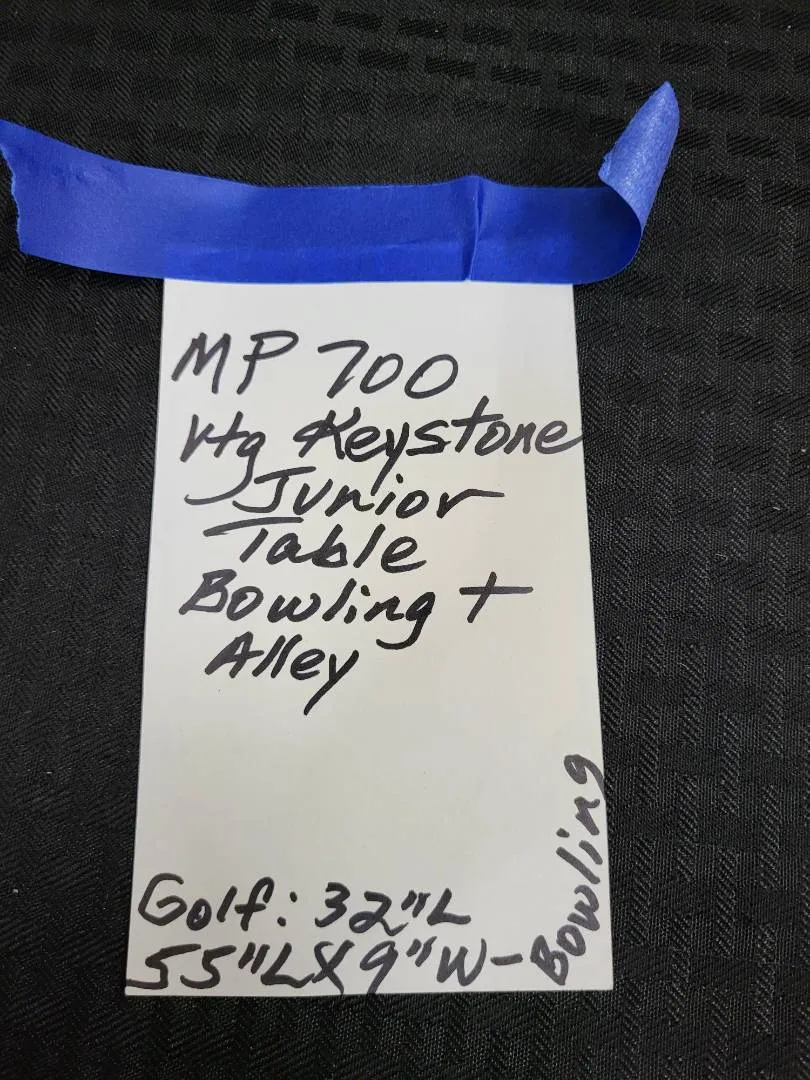 MP 700
Vtg Keystone
Junior
Table
Bowling +
Alley
Golf: 32"L
55"LX9"W-Bowling